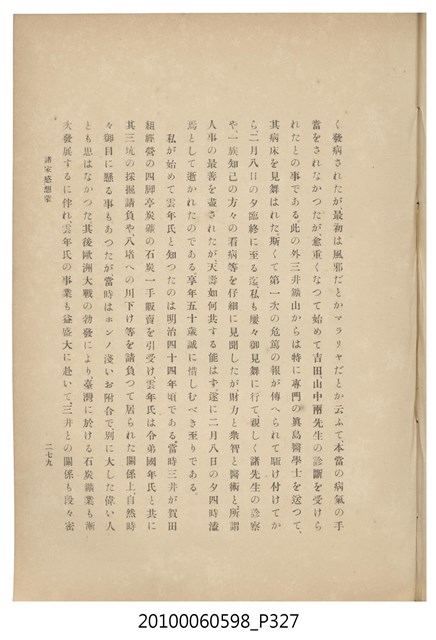 く發病されたが、最初は風邪だとかマラリヤだとか云ふて、本當の病氣の手
當をされなかつたが、愈重くなつて始めて吉田山中兩先生の診斷を受けら
れたとの事である此の外三井鑛山からは特に專門の眞島醫學士を送つて、
其病床を見舞はれた、斯くて第一次の危篤の報が傳へられて駈け付けてか
ら、二月八日の夕臨終に至る迄、私も屢々御見舞に行て親しく諸先生の診察
や、一族知己の方々の看病等を仔細に見聞したが財力と衆智と醫術と、所謂
人事の最善を盡されたが、天壽如何共する能はず、遂に二月八日の夕四時溘
焉として逝かれたのである享年五十歳誠に惜しむべき至りである。
私が始めて雲年氏と知つたのは明治四十四年頃である、當時三井が賀田
組經營の四脚亭炭礦の石炭一手販賣を引受け、雲年氏は令弟國年氏と共に
其三坑の採掘請負や、八堵への川下げ等を請負つて居られた關係上、自然時
々御目に懸る事もあつたが、當時はホンノ淺いお附合で、別に大した偉い人
とも思はなかつた其後歐洲大戰の勃發により、臺灣に於ける石炭鑛業も漸
次發展するに伴れ、雲年氏の事業も益盛大に赴いて、三井との關係も段々密
諸家感想蒙
二七九
20100060598_P327